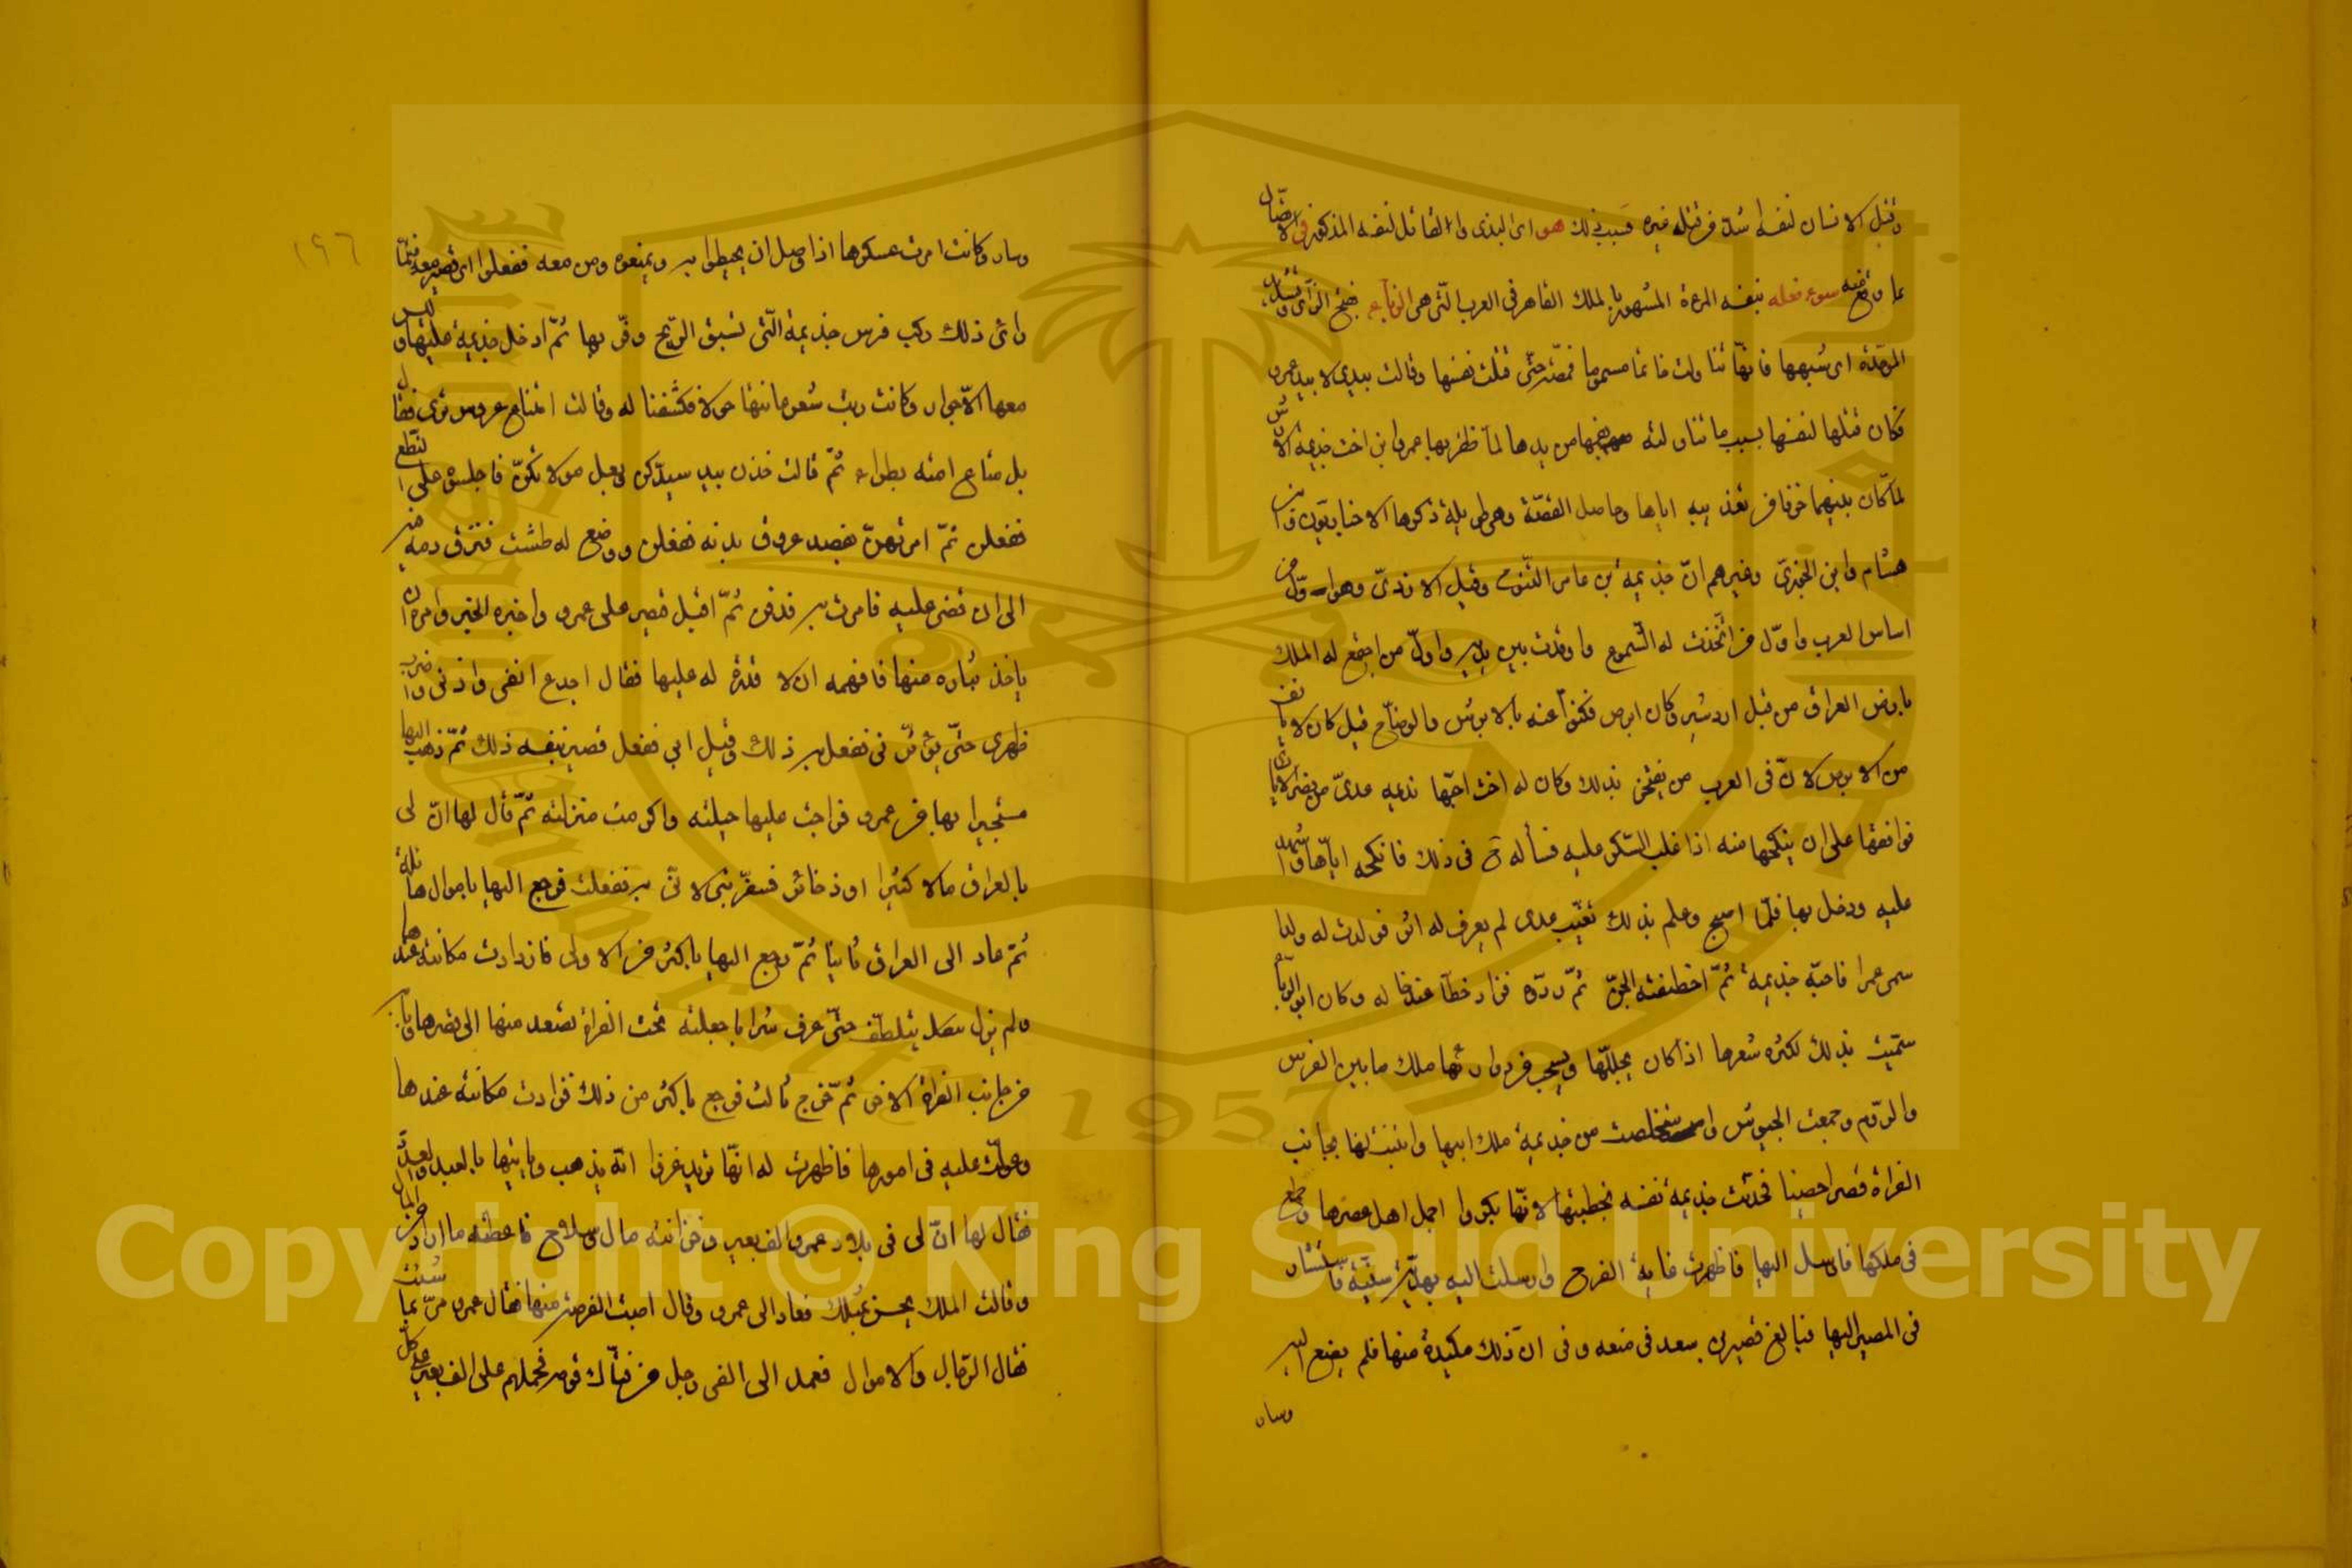 وقتل الانسان لنفسه اشد من قتله غيره فسبب ذلك هو اى البذى والقاتل لنفسه المذكور فى الامثال
بما وقع منه سوء فعله بنفسه المرءة المشهورة بالملك القاهر فى العرب التى هى الزبآء بفتح الزاى وتشديد
الموحّدة اى شبهها فانّها تناولت خاتما مسموما فمصّته حتى قتلت نفسها وقالت بيدى لا بيد عمرو
فكان قتلها لنفسها بسبب ما تناولته بنفسها من يدها لمّا ظفر بها عمرو ابن اخت جذيمة الابرش
لما كان بينهما خوفا من تعذيبه اياها وحاصل القصّة وهى طويلة ذكرها الاخباريّون كابن
هشام وابن الجوزىّ وغيرهم انّ جذيمة بن عامر التنوخى وقيل الازدىّ وهو اوّل من
اساس العرب واوّل من اتّخذت له الشموع واوقدت بين يديه واوّل من اجتمع له الملك
بارض العراق من قبل اردشير وكان ابرص فكنوا عنه بالابرش والوضّاح قيل كان لا يأنف
من الابرص لانّ فى العرب من يفتخر بذلك وكان له اخت احبّها نديمه عدىّ من نضر الايادى
فوافقها على ان ينكحها منه اذا غلب السكر عليه فسأله فى ذلك فانكحه ايّاها واشهد
عليه ودخل بها فلمّا اصبح وعلم بذلك تغيّب عدى لم يعرف له اثر فولدت له ولدا
سمى عمرا فاحبّه جذيمة ثمّ اختطفته الجنّ ثمّ ردّوه فزاد خطّا عنده له وكان ابو الزبّاء
سمّيت بذلك لكثرة شعرها اذا كان يجلّلها ويسحب من ورائها ملك ما بين الفرس
والروم وجمعت الجيوش واستخلصت من جذيمة ملك ابيها وابتنت لها بجانب
الفراة قصرا حصينا فحدّث جذيمة نفسه بخطبتها لانّها بكر واجمل اهل عصرها وطمع
فى ملكها فارسل اليها فاظهرت غاية الفرح وارسلت اليه بهديّة سنيّة فاستشار
فى المصير اليها فبالغ قصير بن سعد فى منعه وفى انّ ذلك مكيدة منها فلم يصغ اليه
وسار
١٩٦
وسار وكانت امرت عسكرها اذا وصل ان يحيطوا به ويمنعوه ومن معه ففعلوا اى قصير معه فلمّا
رأى ذلك ركب فرس جذيمة الّتى تسبق الريح وفرّ بها ثمّ ادخل جذيمة عليها وليس
معها الّا جوار وكانت ربت شعر عانتها حولا فكشفنا له وقالت امتاع عروس ترى فقال
بل متاع امته بطراء ثمّ قالت خذن بيد سيدكن وبعل مولاتكنّ فاجلسن على النطع
ففعلن ثمّ امرتهنّ بفصد عروق بدنه ففعلن ووضع له طشت فنزف دمه فيه
الى ان قضى عليه فامرت به فدفن ثمّ اقبل قصير على عمرو واخبره الخبر وامره ان
ياخذ بثاره منها فافهمه ان لا قدرة له عليها فقال اجدع انفى واذنى واضرب
ظهرى حتّى يؤثّر فى ففعل به ذلك وقيل ابى ففعل قصير بنفسه ذلك ثمّ ذهب اليها
مستجيرا بها من عمرو فراجت عليها حيلته واكرمت منزلته ثمّ قال لها انّ لى
بالعراق مالا كثيرا او ذخائر فسفّرينى لآتى به ففعلت فرجع اليها باموال هائلة
ثمّ عاد الى العراق ثانيا ثمّ رجع اليها باكثر من الاولى فازدادت مكانته عندها
ولم يزل يتلطّف حتّى عرف سردابا جعلته تحت الفراة تصعد منها الى قصرها وباب
من جانب الفراة الاخر ثمّ خرج ثالث فرجع باكثر من ذلك فزادت مكانته عندها
وعولت عليه فى امورها فاظهرت له انّها تريد غزوا انّه يذهب وياتيها بالعبيد والعدّة
فقال لها انّ لى فى بلاد عمرو الف بعير وخزانته مال وسلاح فاعطته ما اراد من المال
وقالت الملك يحسن بمثلك فعاد الى عمرو وقال اصبت الفرصة منها فقال عمرو مر بما شئت
فقال الرّجال والاموال فعمد الى الفى رجل من فتّاك قومه فحملهم على الف بعير على كلّ
Copyright © King Saud University
1957